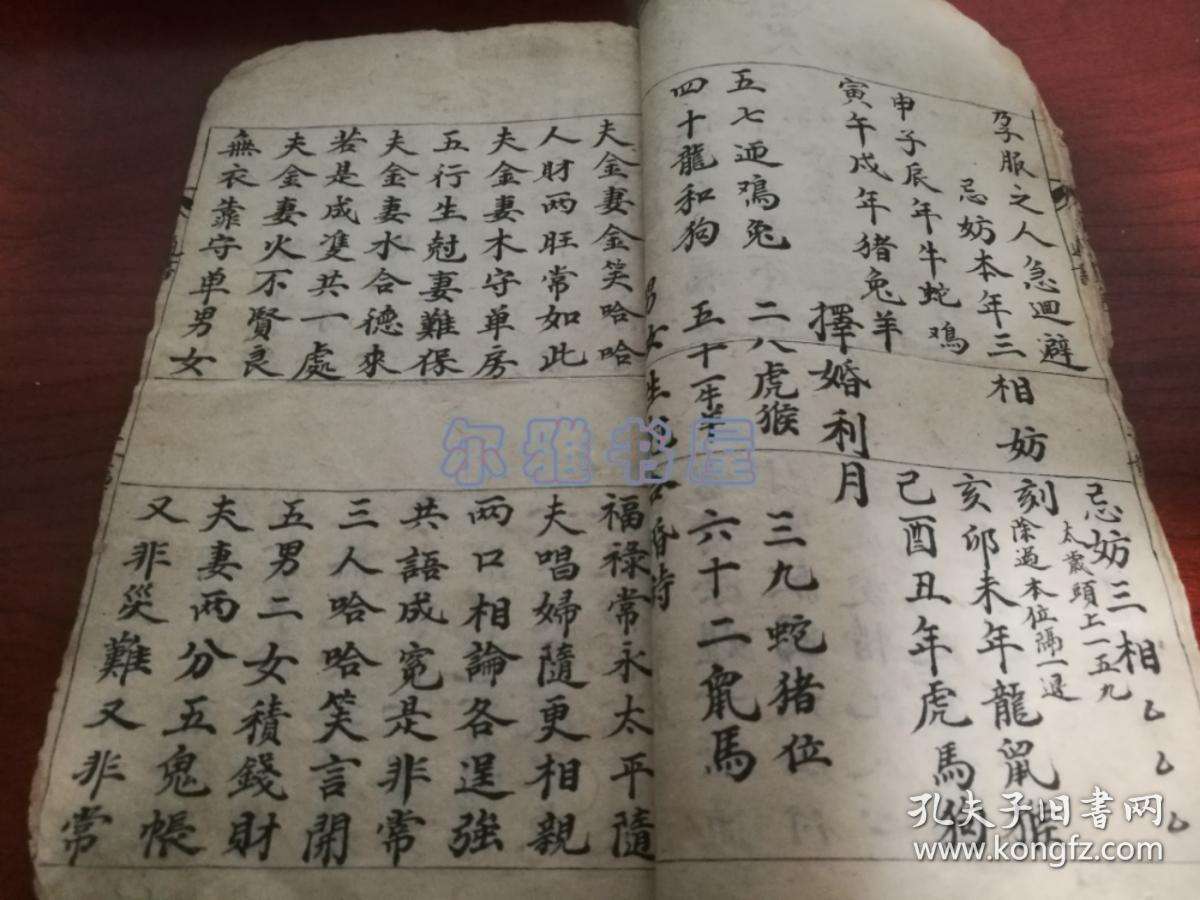 孕服之人急迴避
忌妨本年三
相妨
忌妨三相
太歲頭上一五九
刻除過本位隔一退
申子辰年牛蛇鳮
亥卯未年龍鼠猴
寅午戌年猪兔羊
己酉丑年虎馬狗
擇婚利月
五七迎鳮兔
二八虎猴
三九蛇猪位
四十龍和狗
五十一牛羊
六十二鼠馬
男女生 婚詩
夫金妻金笑哈哈
福禄常永太平隨
人財两旺常如此
夫唱婦隨更相親
夫金妻木守单房
两口相論各逞強
五行生尅妻難保
共語成寃是非常
夫金妻水合德來
三人哈哈笑言開
若是成隻共一處
五男二女積錢財
夫金妻火不賢良
夫妻两分五鬼帳
無衣靠守单男女
又非災難又非常
尔雅书屋
孔夫子旧书网
www.kongfz.com